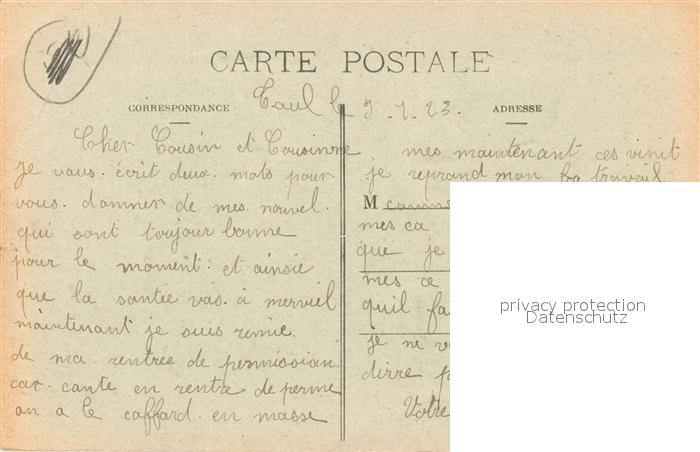 CARTE POSTALE
CORRESPONDANCE
ADRESSE
Toul le 9.1.23.
Cher Cousin et Cousinne
Je vous écrit deux mots pour
vous damner de mes nouvel.
qui sont toujour bonne
pour le moment: et ainsie
que la santée vas. à merviel
maintenant je suis remie
de ma rentrée de permission.
car. cante en rentre de perme
on a le caffard. en masse
mes maintenant ces vinit
je reprend mon travail
M
mes ca
que je
mes ce
quil fa
je ne v
dirre p
Votre
privacy protection
Datenschutz